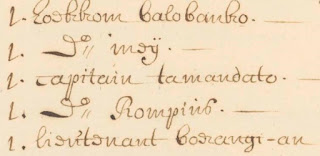 1. Loekkrom balobanko. —
1. D.º meÿ. —
1. Capitain tamandato. —
1. D.º Rompius. —
1. lieutenant boerangi-an